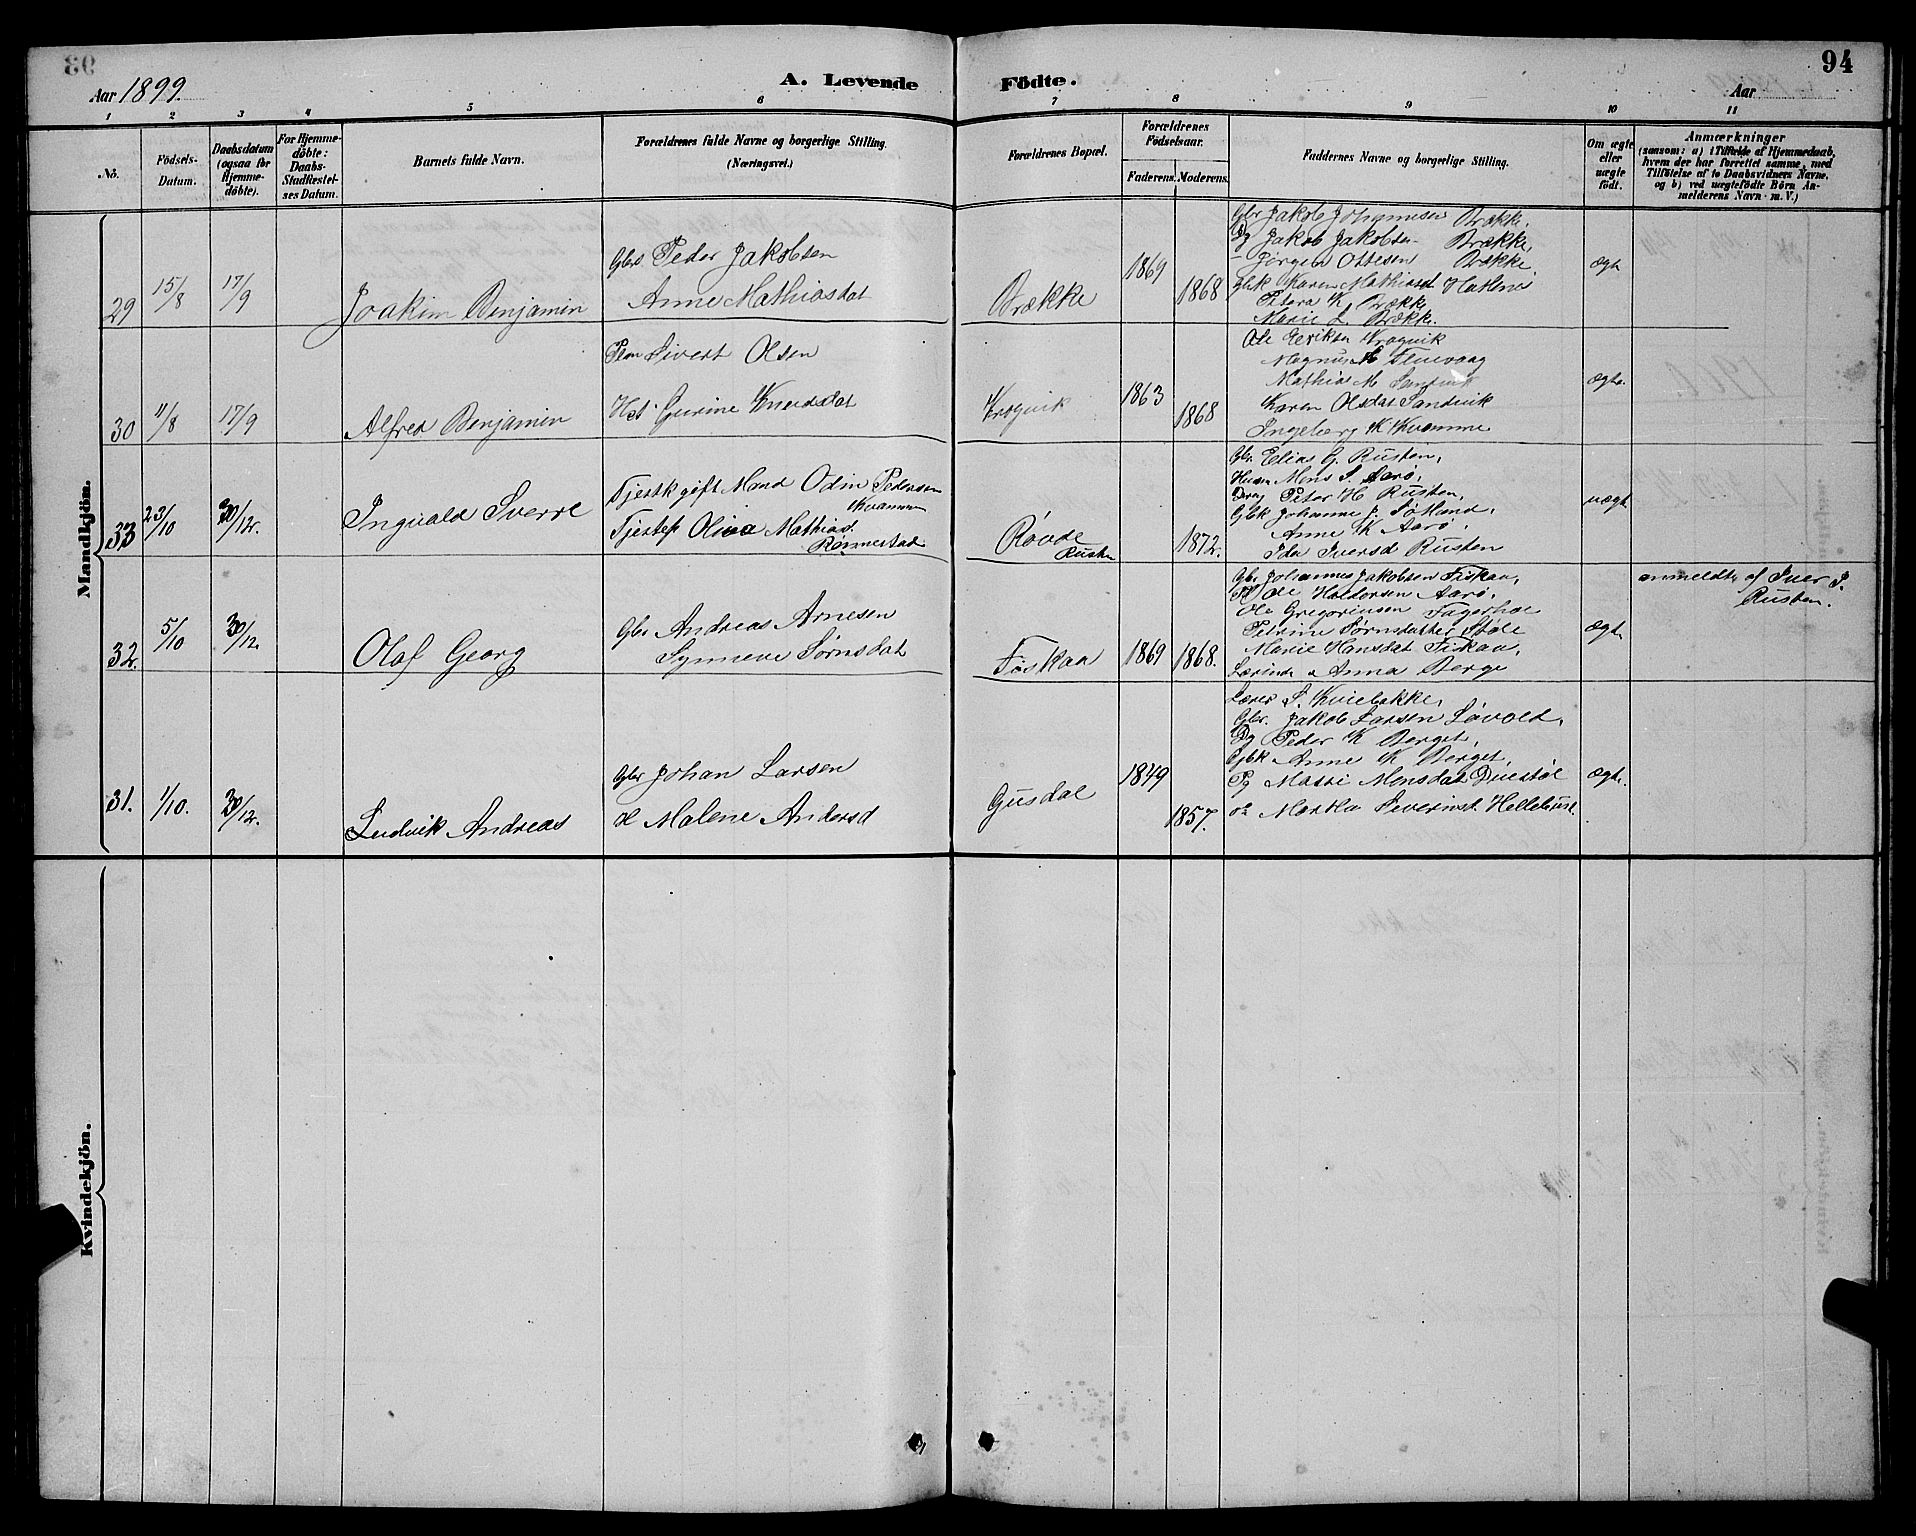 94
Aar 1899.
A. Levende Födte.
Aar
1 2 3 4 5 6 7 8 9 10 11
No.
Födsels-Datum.
Daabsdatum (ogsaa for Hjemmedöbte).
For Hjemmedöbte: Daabs-Stadfæstelses Datum.
Barnets fulde Navn.
Forældrenes fulde Navne og borgerlige Stilling. (Næringsvei.)
Forældrenes Bopæl.
Forældrenes Födselsaar.
Faderens. Moderens.
Faddernes Navne og borgerlige Stilling.
Om ægte eller uægte födt.
Anmærkninger
(saasom: a) i Tilfælde af Hjemmedaab, hvem der har forrettet samme, med Tilföielse af to Daabsvidners Navne, og b) ved uægtefödte Börn Anmelderens Navn m. V.)
Mandkjön.
29 15/8 17/9 Joakim Benjamin
Gbr Peder Jakobsen
Anne Mathiasdat
Brække 1869 1868
Gbr Jakob Johannesen Brække
Pg Jakob Jakobsen Brække
- Jørgen Ottesen Brække
Gbk Karen Mathiasd Hatlenes
Petera K. Brække
Marie L. Brække.
ægt
30 11/8 17/9 Alfred Benjamin
Sivert Olsen
Gurine Knudsdat
Krogvik 1863 1868
Ole Eriksen Krogvik
Magnus Fluevaag
Mathias M Sandvik
Karen Olsdat Sandvik
Ingeborg K Kvamme
ægte.
33 23/10 30/12. Ingvald Sverre
Tjestk gift Mand Odin Pedersen Kvamme
Tjestep Oliva Mathiasd Rønnestad
Røvde Rusten 1872.
Gbr. Elias G. Rusten,
Husm Mons S. Aarø,
Dreng Peter H Rusten,
Gbk Johanne J. Søtland,
Anne K Aarø,
Ida Iversd Rusten
uægt.
32. 5/10 30/12. Olaf Georg
Gbr Andreas Arnesen
Synneve Sørnsdat
Fiskaa 1869 1868.
Gbr Johannes Jakobsen Fiskaa,
Ole Haldorsen Aarø,
Ole Gregoriusen Fagerhol
Petrine Sørnsdatter Støle
Marie Hansdat Fiskaa,
Lærinde Anna Berge
ægt.
anmeldt af Iver P. Rusten.
31. 1/10. 30/12. Ludvik Andreas
Gbr Johan Larsen
H Malene Andersd
Gusdal 1849 1857.
Lærer S. Kviebakke,
Gbr. Jakob Larsen Løvold,
Pg Peder K Berget,
Gbk Anne K Berget,
Pg Massi Monsdat Duestøl
Martha Severinsd Hellebust
ægt.
Kvindekjön.